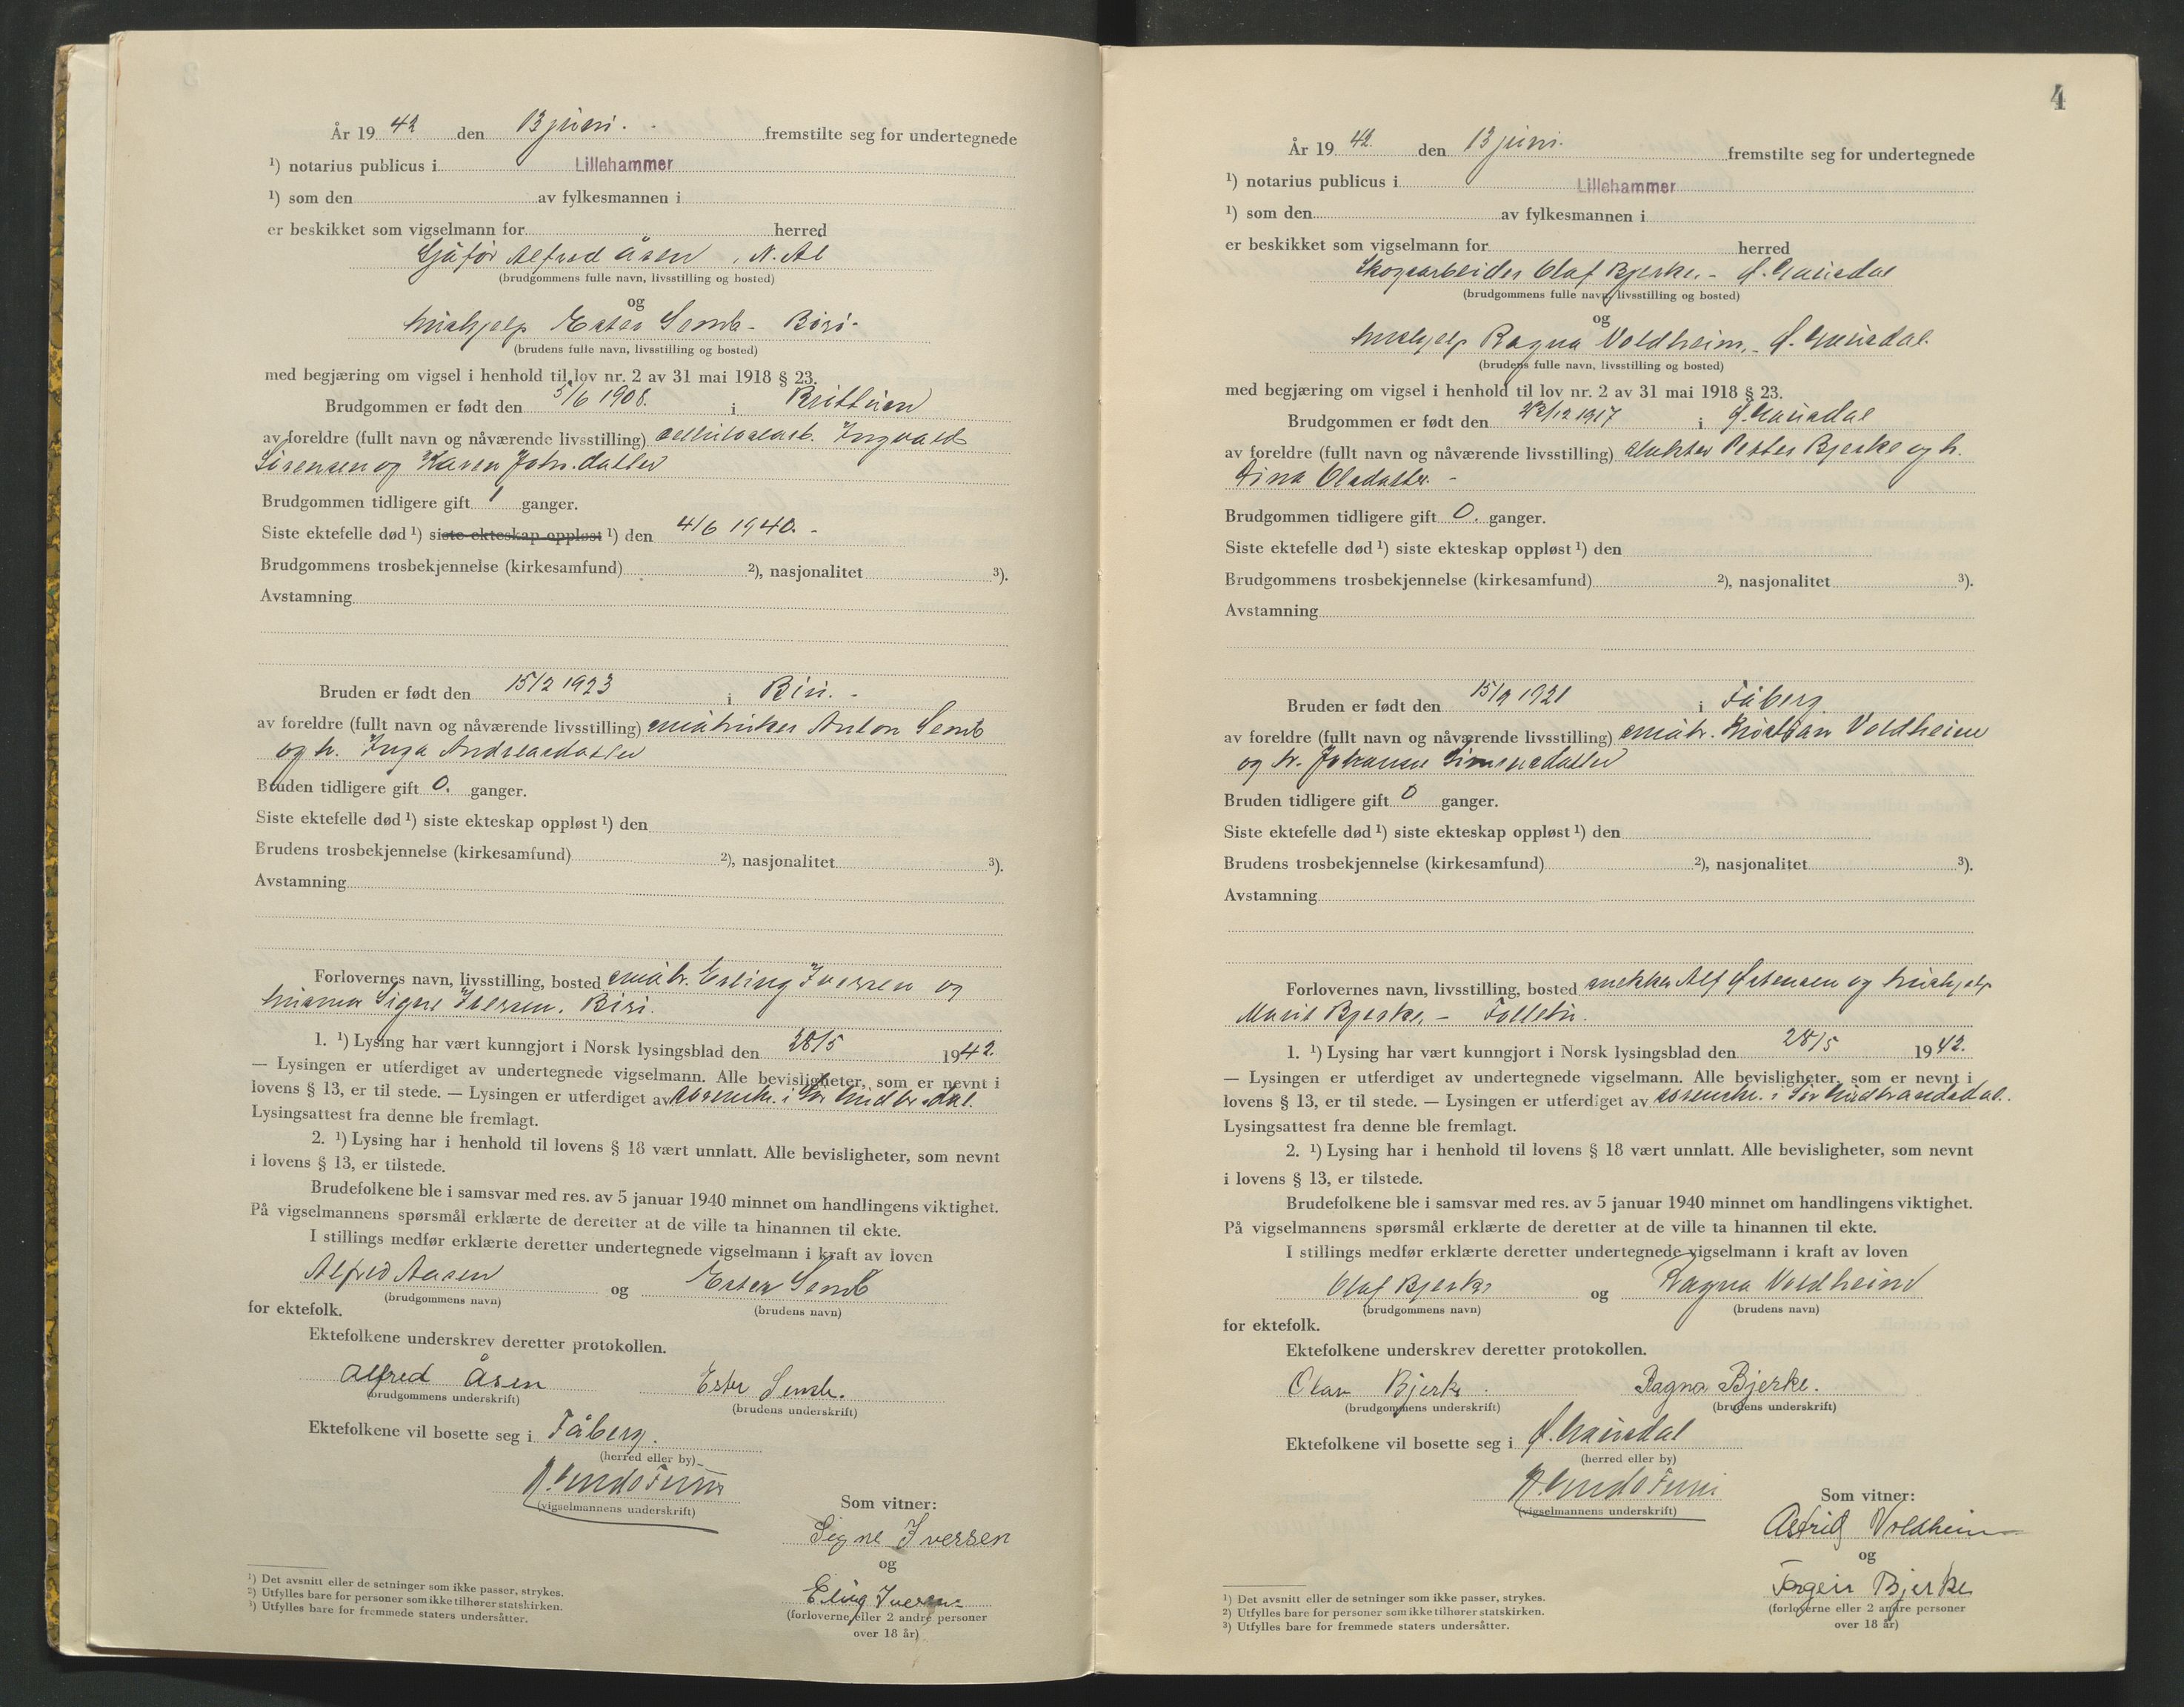 År 19 42 den 13 juni. fremstilte seg for undertegnede
¹) notarius publicus i Lillehammer
¹) som den av fylkesmannen i
er beskikket som vigselmann for herred
Sjåfør Alfred Åsen, N. Ål
(brudgommens fulle navn, livsstilling og bosted)
og
hushjelp Ester Semb - Biri -
(brudens fulle navn, livsstilling og bosted)
med begjæring om vigsel i henhold til lov nr. 2 av 31 mai 1918 § 23.
Brudgommen er født den 5/6 1908. i
av foreldre (fullt navn og nåværende livsstilling) cellulosearb. Ingvald
Sørensen og Karen Joh.datter
Brudgommen tidligere gift 1 ganger.
Siste ektefelle død ¹) siste ekteskap oppløst ¹) den 4/6 1940. -
Brudgommens trosbekjennelse (kirkesamfund) ²), nasjonalitet ³).
Avstamning
Bruden er født den 15/2 1923 i Biri. -
av foreldre (fullt navn og nåværende livsstilling) småbruker Anton Semb
og h. Inga Andreasdatter
Bruden tidligere gift 0. ganger.
Siste ektefelle død ¹) siste ekteskap oppløst ¹) den
Brudens trosbekjennelse (kirkesamfund) ²), nasjonalitet ³).
Avstamning
Forlovernes navn, livsstilling, bosted småbr. Erling Iversen og
husmor Signe Iversen. Biri.
1. ¹) Lysing har vært kunngjort i Norsk lysingsblad den 28/5 1942.
— Lysingen er utferdiget av undertegnede vigselmann. Alle bevisligheter, som er nevnt i
lovens § 13, er til stede. — Lysingen er utferdiget av sorenskr. i Sør Gudbr.dal.
Lysingsattest fra denne ble fremlagt.
2. ¹) Lysing har i henhold til lovens § 18 vært unnlatt. Alle bevisligheter, som nevnt
i lovens § 13, er tilstede.
Brudefolkene ble i samsvar med res. av 5 januar 1940 minnet om handlingens viktighet.
På vigselmannens spørsmål erklærte de deretter at de ville ta hinannen til ekte.
I stillings medfør erklærte deretter undertegnede vigselmann i kraft av loven
Alfred Aasen og Ester Semb
(brudgommens navn) (brudens navn)
for ektefolk.
Ektefolkene underskrev deretter protokollen.
Alfred Åsen Ester Semb.
(brudgommens underskrift) (brudens underskrift)
Ektefolkene vil bosette seg i Fåberg.
(herred eller by)
(vigselmannens underskrift)
Som vitner:
Signe Iversen
og
Erling Iversen
(forloverne eller 2 andre personer
over 18 år)
¹) Det avsnitt eller de setninger som ikke passer, strykes.
²) Utfylles bare for personer som ikke tilhører statskirken.
³) Utfylles bare for fremmede staters undersåtter.
4
År 19 42. den 13 juni. fremstilte seg for undertegnede
¹) notarius publicus i Lillehammer
¹) som den av fylkesmannen i
er beskikket som vigselmann for herred
Skogsarbeider Olaf Bjerke. - Ø. Gausdal
(brudgommens fulle navn, livsstilling og bosted)
og
hushjelp Ragna Voldheim, - Ø. Gausdal.
(brudens fulle navn, livsstilling og bosted)
med begjæring om vigsel i henhold til lov nr. 2 av 31 mai 1918 § 23.
Brudgommen er født den 23/12 1917 i Ø. Gausdal
av foreldre (fullt navn og nåværende livsstilling) slakter Petter Bjerke og h.
Dina Olsdatter. -
Brudgommen tidligere gift 0. ganger.
Siste ektefelle død ¹) siste ekteskap oppløst ¹) den
Brudgommens trosbekjennelse (kirkesamfund) ²), nasjonalitet ³).
Avstamning
Bruden er født den 15/9 1921 i Fåberg.
av foreldre (fullt navn og nåværende livsstilling) småbr. Kristian Voldheim
og h. Johanne Simensdatter
Bruden tidligere gift 0 ganger.
Siste ektefelle død ¹) siste ekteskap oppløst ¹) den
Brudens trosbekjennelse (kirkesamfund) ²), nasjonalitet ³).
Avstamning
Forlovernes navn, livsstilling, bosted snekker Alf Østensen og hushjelp
Marit Bjerke. - Follebu.
1. ¹) Lysing har vært kunngjort i Norsk lysingsblad den 28/5 1942.
— Lysingen er utferdiget av undertegnede vigselmann. Alle bevisligheter, som er nevnt i
lovens § 13, er til stede. — Lysingen er utferdiget av sorenskr. i Sør Gudbrandsdal.
Lysingsattest fra denne ble fremlagt.
2. ¹) Lysing har i henhold til lovens § 18 vært unnlatt. Alle bevisligheter, som nevnt
i lovens § 13, er tilstede.
Brudefolkene ble i samsvar med res. av 5 januar 1940 minnet om handlingens viktighet.
På vigselmannens spørsmål erklærte de deretter at de ville ta hinannen til ekte.
I stillings medfør erklærte deretter undertegnede vigselmann i kraft av loven
Olaf Bjerke og Ragna Voldheim
(brudgommens navn) (brudens navn)
for ektefolk.
Ektefolkene underskrev deretter protokollen.
Olav Bjerke. Ragna Bjerke.
(brudgommens underskrift) (brudens underskrift)
Ektefolkene vil bosette seg i Ø. Gausdal
(herred eller by)
(vigselmannens underskrift)
Som vitner:
Astrid Voldheim
og
Torgeir Bjerke
(forloverne eller 2 andre personer
over 18 år)
¹) Det avsnitt eller de setninger som ikke passer, strykes.
²) Utfylles bare for personer som ikke tilhører statskirken.
³) Utfylles bare for fremmede staters undersåtter.